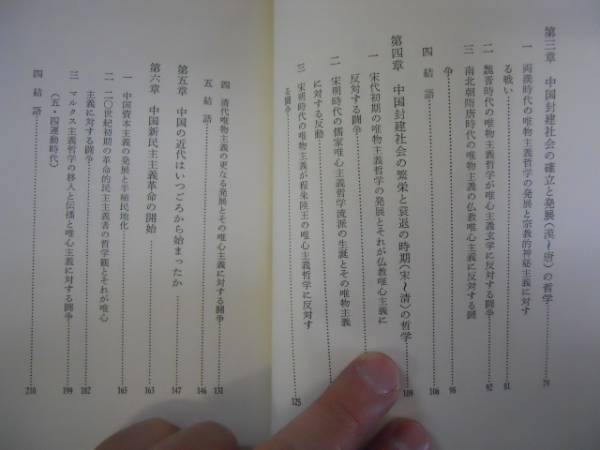 第三章 中国封建社会の確立と発展(漢〜唐)の哲学……79
一 両漢時代の唯物主義哲学の発展と宗教的神秘主義に対す
る戦い……81
二 魏晋時代の唯物主義哲学が唯心主義玄学に反対する闘争……92
三 南北朝隋唐時代の唯物主義の仏教唯心主義に反対する闘
争……98
四 結語……106
第四章 中国封建社会の繁栄と衰退の時期(宋〜清)の哲学……109
一 宋代初期の唯物主義哲学の発展とそれが仏教唯心主義に
反対する闘争……
二 宋明時代の儒家唯心主義哲学流派の生誕とその唯物主義
に対する反動……
三 宋明時代の唯物主義が程朱陸王の唯心主義哲学に反対す
る闘争……125
四 清代唯物主義の更なる発展とその唯心主義に対する闘争……131
五 結語……146
第五章 中国の近代はいつごろから始まったか……147
第六章 中国新民主主義革命の開始……163
一 中国資本主義の発展と半植民地化……165
二 二〇世紀初期の革命的民主主義者の哲学観とそれが唯心
主義に対する闘争……182
三 マルクス主義哲学の移入と伝播と唯心主義に対する闘争
(五・四運動時代)……199
四 結語……210